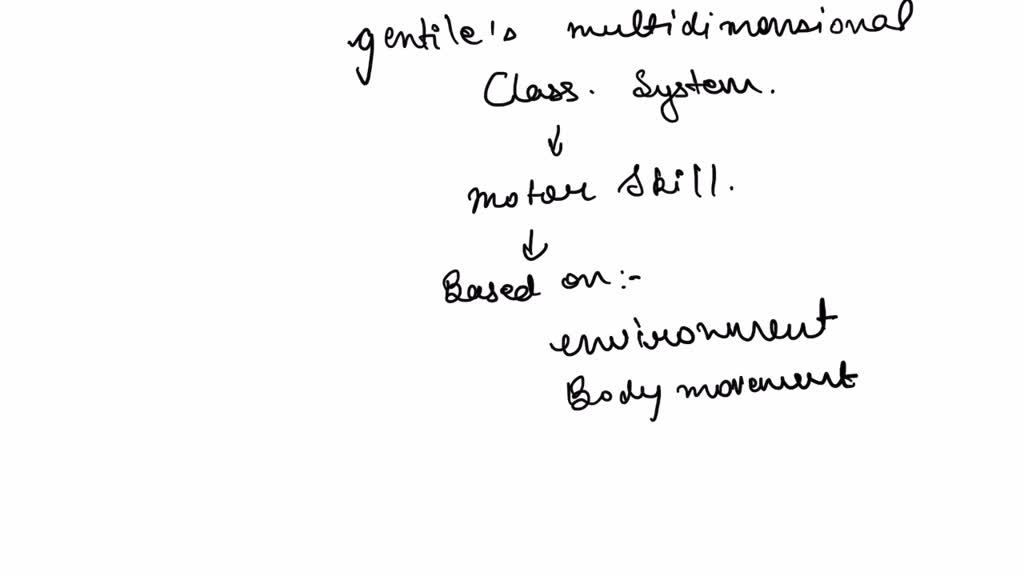 gentile's multidimensional
Class. System.
↓
motor skill.
↓
Based on :-
environment
Body movement